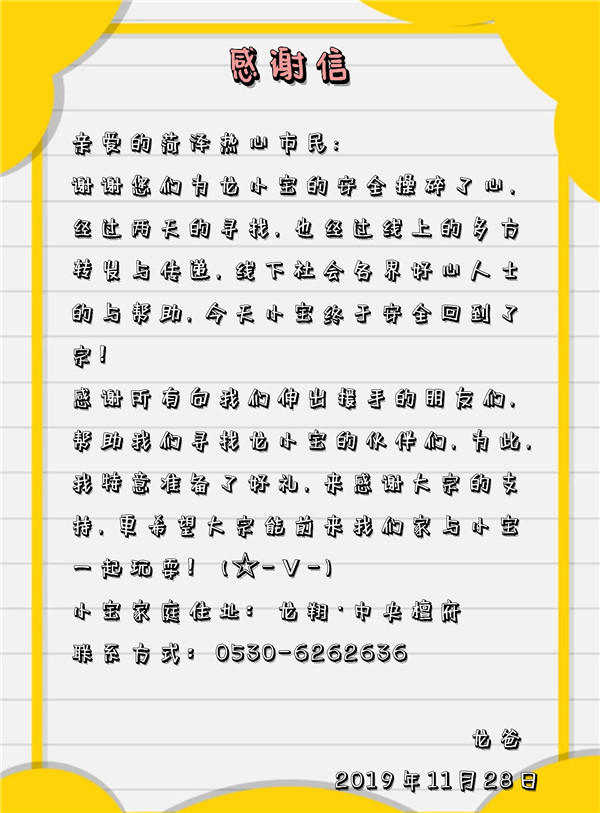 感谢信
亲爱的菏泽热心市民:
谢谢您们为龙小宝的安全操碎了心,
经过两天的寻找,也经过线上的多方
转发与传递,线下社会各界好心人士
的与帮助,今天小宝终于安全回到了
家!
感谢所有向我们伸出援手的朋友们,
帮助我们寻找龙小宝的伙伴们,为此,
我特意准备了好礼,来感谢大家的支
持,更希望大家能前来我们家与小宝
一起玩耍! (☆-V-)
小宝家庭住址: 龙翔·中央檀府
联系方式: 0530-6262636
龙爸
2019年11月28日